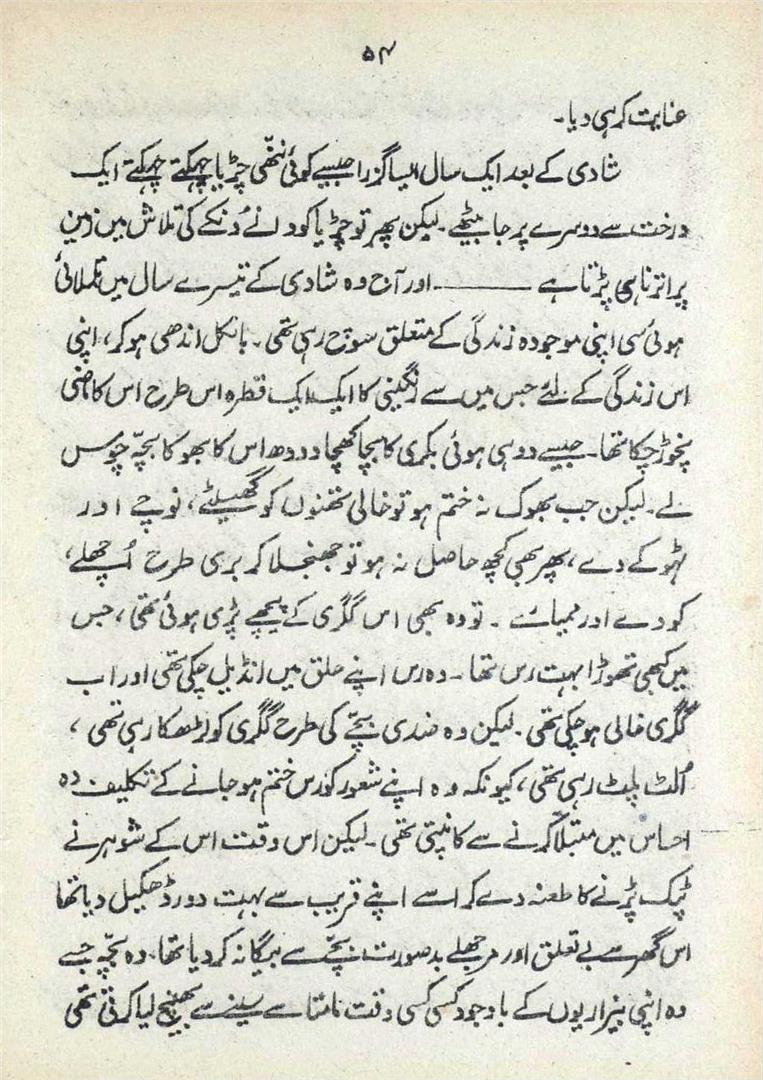 ۵۴
عنایت کر ہی دیا۔
شادی کے بعد ایک سال ایسا گزرا جیسے کوئی ننھّی چڑیا چہکتے چہکتے ایک
درخت سے دوسرے پر جا بیٹھے۔ لیکن پھر تو چڑیا کو دانے دُنکے کی تلاش میں زمین
پر اترنا ہی پڑتا ہے ——— اور آج وہ شادی کے تیسرے سال میں تلملائی
ہوئی سی اپنی موجودہ زندگی کے متعلق سوچ رہی تھی۔ بالکل اندھی ہو کر، اپنی
اس زندگی کے لئے جس میں سے رنگینی کا ایک ایک قطرہ اس طرح اس کا ماضی
نچوڑ چکا تھا۔ جیسے دوہی ہوئی بکری کا بچا کھچا دودھ اس کا بھوکا بچّہ چوس
لے۔ لیکن جب بھوک نہ ختم ہو تو خالی تھنوں کو گھسیٹے، نوچے اور
ٹہوکے دے، پھر بھی کچھ حاصل نہ ہو تو جھنجلا کر بری طرح اُچھلے،
کودے اور ممیائے۔ تو وہ بھی اس گگری کے پیچھے پڑی ہوئی تھی، جس
میں کبھی تھوڑا بہت رس تھا۔ وہ رس اپنے حلق میں انڈیل چکی تھی اور اب
گگری خالی ہو چکی تھی۔ لیکن وہ ضدی بچّے کی طرح گگری کو لڑھکا رہی تھی،
اُلٹ پلٹ رہی تھی، کیونکہ وہ اپنے شعور کو رس ختم ہو جانے کے تکلیف دہ
احساس میں مبتلا کرنے سے کانپتی تھی۔ لیکن اس وقت اس کے شوہر نے
ٹپک پڑنے کا طعنہ دے کر اسے اپنے قریب سے بہت دور ڈھکیل دیا تھا
اس گھر سے بے تعلق اور مرجھلے بدصورت بچّے سے بیگانہ کر دیا تھا۔ وہ بچّہ جسے
وہ اپنی بیزاریوں کے باوجود کسی کسی وقت مامتا سے سینے سے بھینچ لیا کرتی تھی